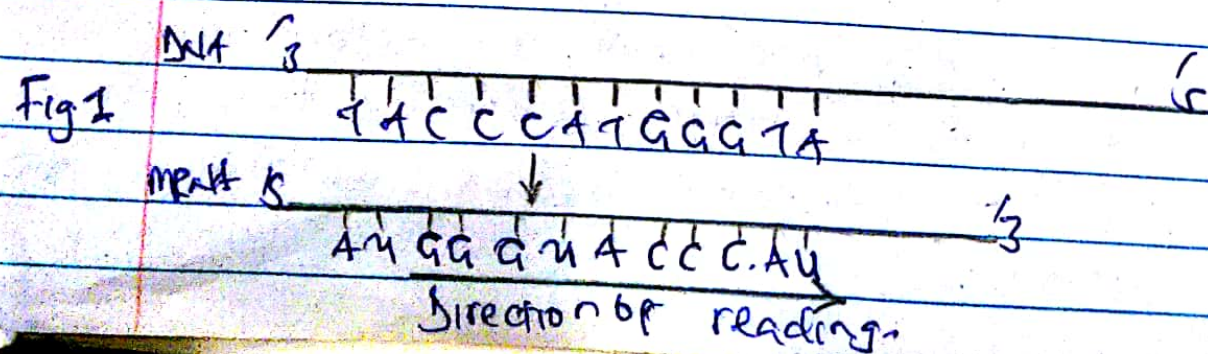 DNA '3 '5
Fig 1
T A C C C A T G G G T A
mRNA '5 '3
A U G G G U A C C C . A U
Direction of reading.